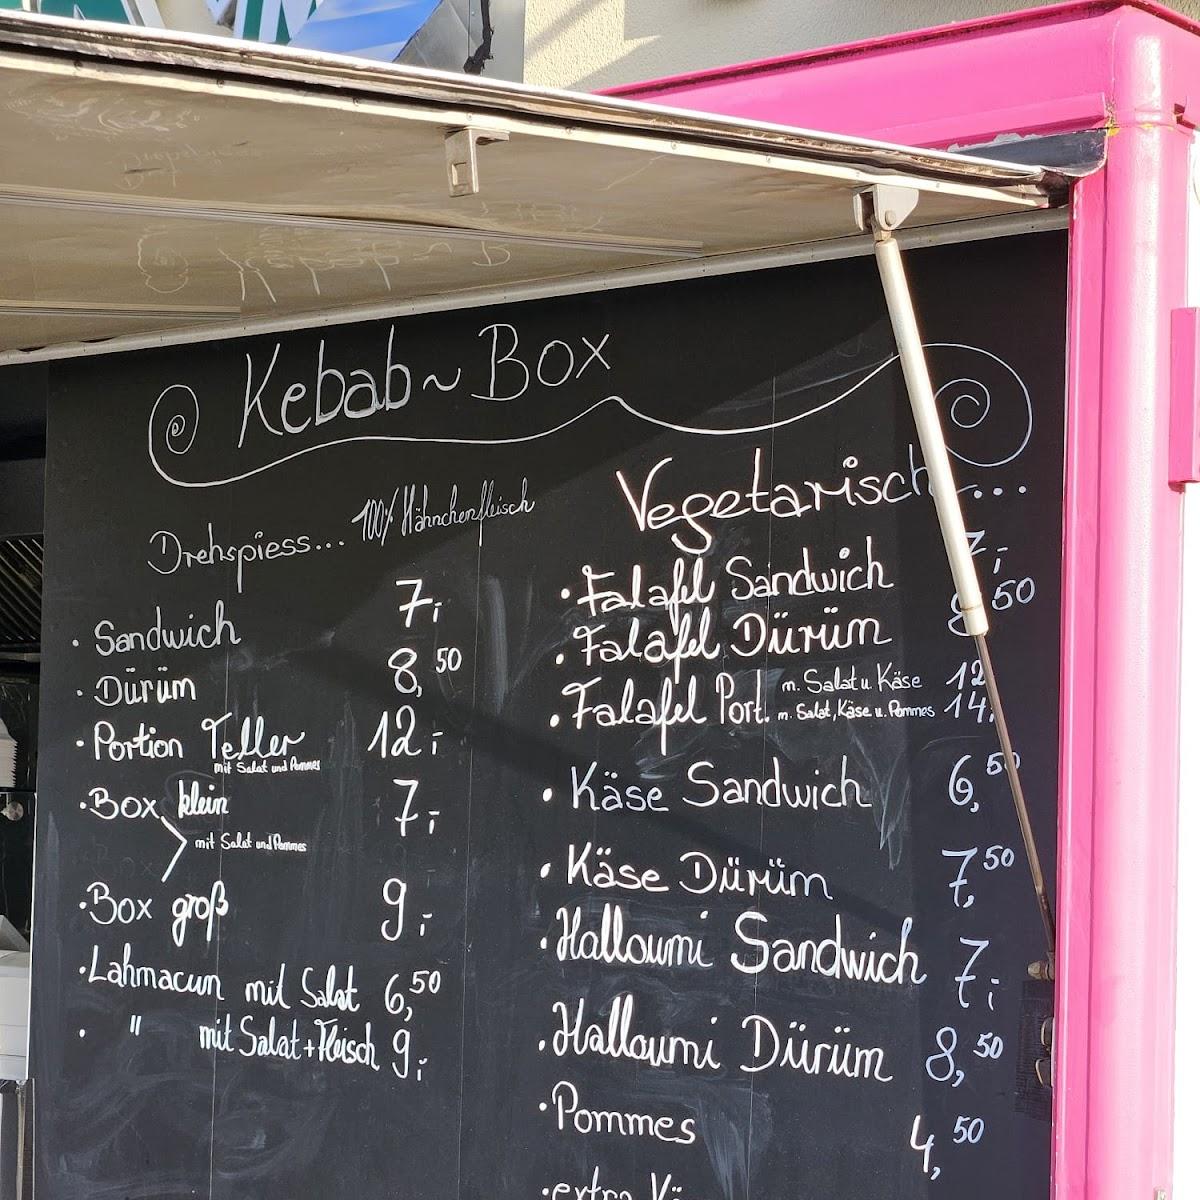 Kebab~Box
Drehspiess... 100% Hähnchenfleisch
· Sandwich 7,-
· Dürüm 8,50
· Portion Teller 12,-
mit Salat und Pommes
· Box klein 7,-
mit Salat und Pommes
· Box groß 9,-
· Lahmacun mit Salat 6,50
· " mit Salat + Fleisch 9,-
Vegetarisch...
· Falafel Sandwich 7,-
· Falafel Dürüm 8,50
· Falafel Port. m. Salat u. Käse 12
m. Salat, Käse u. Pommes 14,
· Käse Sandwich 6,50
· Käse Dürüm 7,50
· Halloumi Sandwich 7,-
· Halloumi Dürüm 8,50
· Pommes 4,50
· extra